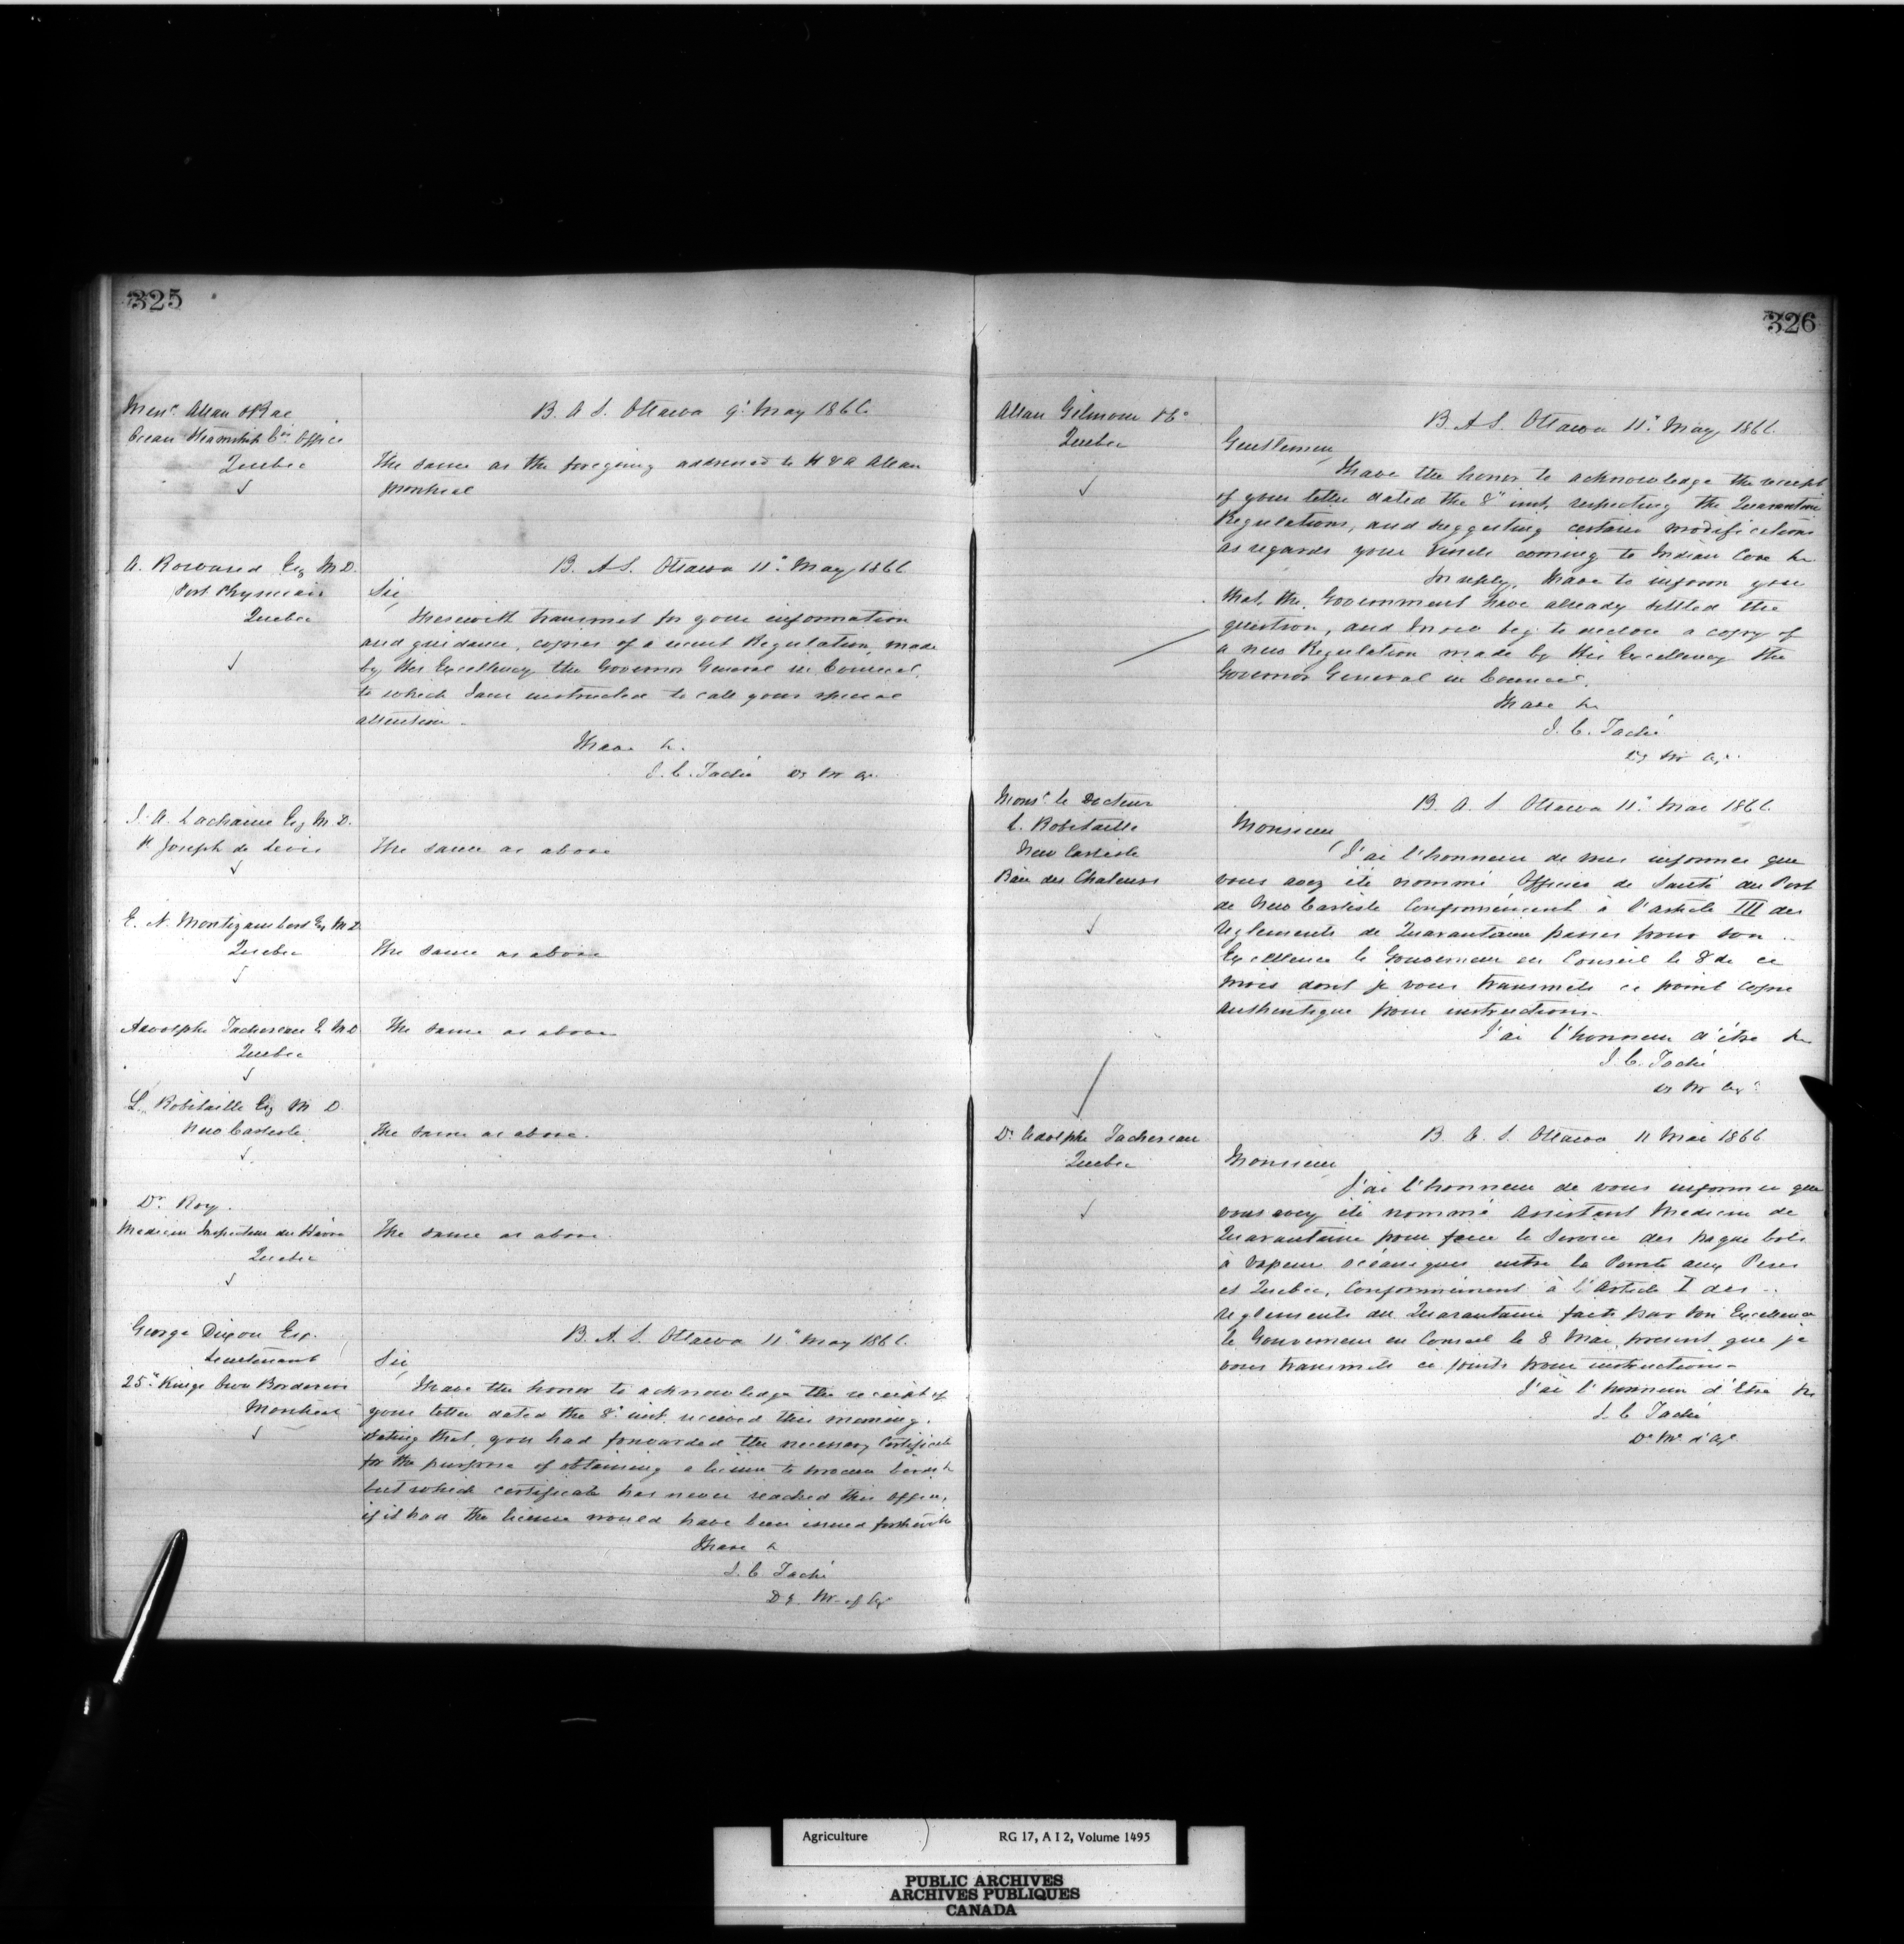 325
Messrs. Allan & Rae
Ocean Steamship Co's Office
Quebec
B. A. S. Ottawa 9" May 1866.
The same as the foregoing addressed to H & A Allan
Montreal
A. Rowand Esq M.D.
Port Physician
Quebec
B. A. S. Ottawa 11" May 1866
Sir,
I herewith transmit for your information
and guidance, copies of a recent Regulation, made
by His Excellency the Governor General in Council,
to which I am instructed to call your special
attention.
I have &.
J. C. Taché Dy Mr Agr.
J. A. Lachaine Esq M.D.
St Joseph de Levis
The same as above
E. N. Montizambert Esq M.D.
Quebec
The same as above
Adolphe Tachereau E. M.D
Quebec
The same as above
L. Robitaille Esq M D.
New Carlisle
The same as above.
Dr. Roy.
Medecin Inspecteur du Hâvre
Quebec
The same as above.
George Dixon Esq.
Lieutenant
25" Kings Own Borderers
Montreal
B. A. S. Ottawa 11" May 1866.
Sir,
I have the honor to acknowledge the receipt of
your letter dated the 8" inst. received this morning,
stating that, you had forwarded the necessary Certificate
for the purpose of obtaining a license to procure birds &
but which certificate has never reached this office,
if it had the license would have been issued forthwith
I have &
J. C Taché
Dy. M. of Agr
326
Allan Gilmour & Co
Quebec
B. A S. Ottawa 11" May 1866.
Gentlemen,
I have the honor to acknowledge the receipt
of your letter dated the 8" inst, respecting the Quarantine
Regulations, and suggesting certain modifications
as regards your vessels coming to Indian Cove &c
In reply, I have to inform you
that, the Government have already settled the
question, and I now beg to enclose a copy of
a new Regulation made by His Excellency the
Governor General in Council.
I have &c
J. C. Taché
Dy Mr Agr.
Monsr. le Docteur
L. Robitaille
New Carlisle
Baie des Chaleurs
B. A. S Ottawa 11" Mai 1866.
Monsieur,
J'ai l'honneur de vous informer que
vous avez été nommé Officier de Santé du Port
de New Carlisle Conformément à l'article III des
Règlements de Quarantaine passés pour Son
Excellence le Gouverneur en Conseil le 8 de ce
mois dont je vous transmets ci joint copie
authentique pour instructions.
J'ai l'honneur d'être &c
J. C. Taché
Dy Mr Agr.
Dr Adolphe Tachereau
Quebec
B. A. S. Ottawa 11 Mai 1866
Monsieur
J'ai l'honneur de vous informer que
vous avez été nommé Assistant Medecin de
Quarantaine pour faire le Service des paquebots
à Vapeur océaniques entre la Pointe aux Peres
et Quebec, Conformément à l'Article I des
règlements du Quarantaine faits par Son Excellence
le Gouverneur en Conseil le 8 Mai, present que je
vous transmets ci joints pour instructions.
J'ai l'honneur d'Etre &c
J. C Taché
De Mr d'Agr
Agriculture RG 17, A I 2, Volume 1495
PUBLIC ARCHIVES
ARCHIVES PUBLIQUES
CANADA